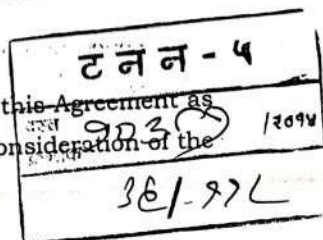 ट न न - ५
this Agreement as
दस्त १०३७ /२०१४
onsideration of the
३६/११८